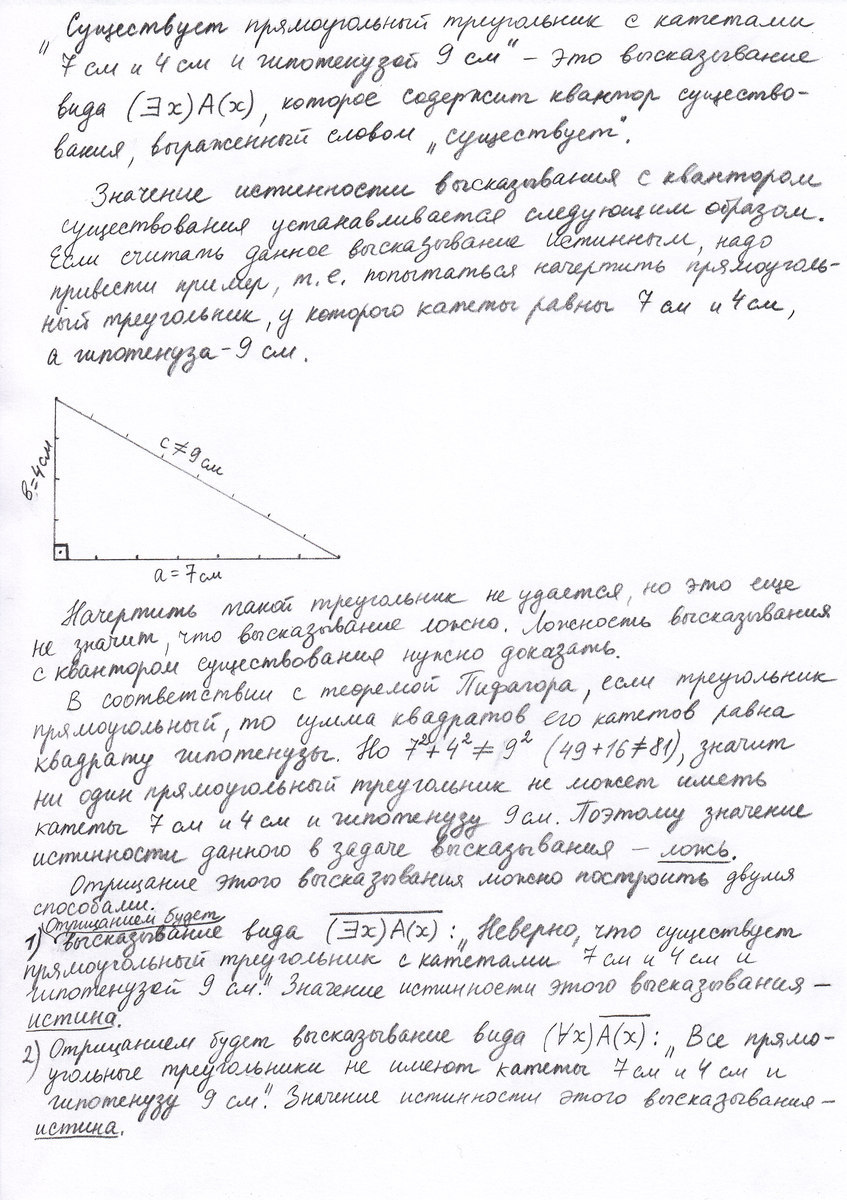 „Существует прямоугольный треугольник с катетами
7 см и 4 см и гипотенузой 9 см" – это высказывание
вида (∃x)A(x), которое содержит квантор существо-
вания, выраженный словом „существует".
Значение истинности высказывания с квантором
существования устанавливается следующим образом.
Если считать данное высказывание истинным, надо
привести пример, т.е. попытаться начертить прямоуголь-
ный треугольник, у которого катеты равны 7 см и 4 см,
а гипотенуза – 9 см.
в=4см
c≠9см
a=7см
Начертить такой треугольник не удается, но это еще
не значит, что высказывание ложно. Ложность высказывания
с квантором существования нужно доказать.
В соответствии с теоремой Пифагора, если треугольник
прямоугольный, то сумма квадратов его катетов равна
квадрату гипотенузы. Но 7²+4²≠9² (49+16≠81), значит
ни один прямоугольный треугольник не может иметь
катеты 7 см и 4 см и гипотенузу 9 см. Поэтому значение
истинности данного в задаче высказывания – ложь.
Отрицание этого высказывания можно построить двумя
способами.
Отрицанием будет
1) высказывание вида (∃x)A(x) : „Неверно, что существует
прямоугольный треугольник с катетами 7 см и 4 см и
гипотенузой 9 см". Значение истинности этого высказывания –
истина.
2) Отрицанием будет высказывание вида (∀x)A(x) : „Все прямо-
угольные треугольники не имеют катеты 7 см и 4 см и
гипотенузу 9 см". Значение истинности этого высказывания –
истина.